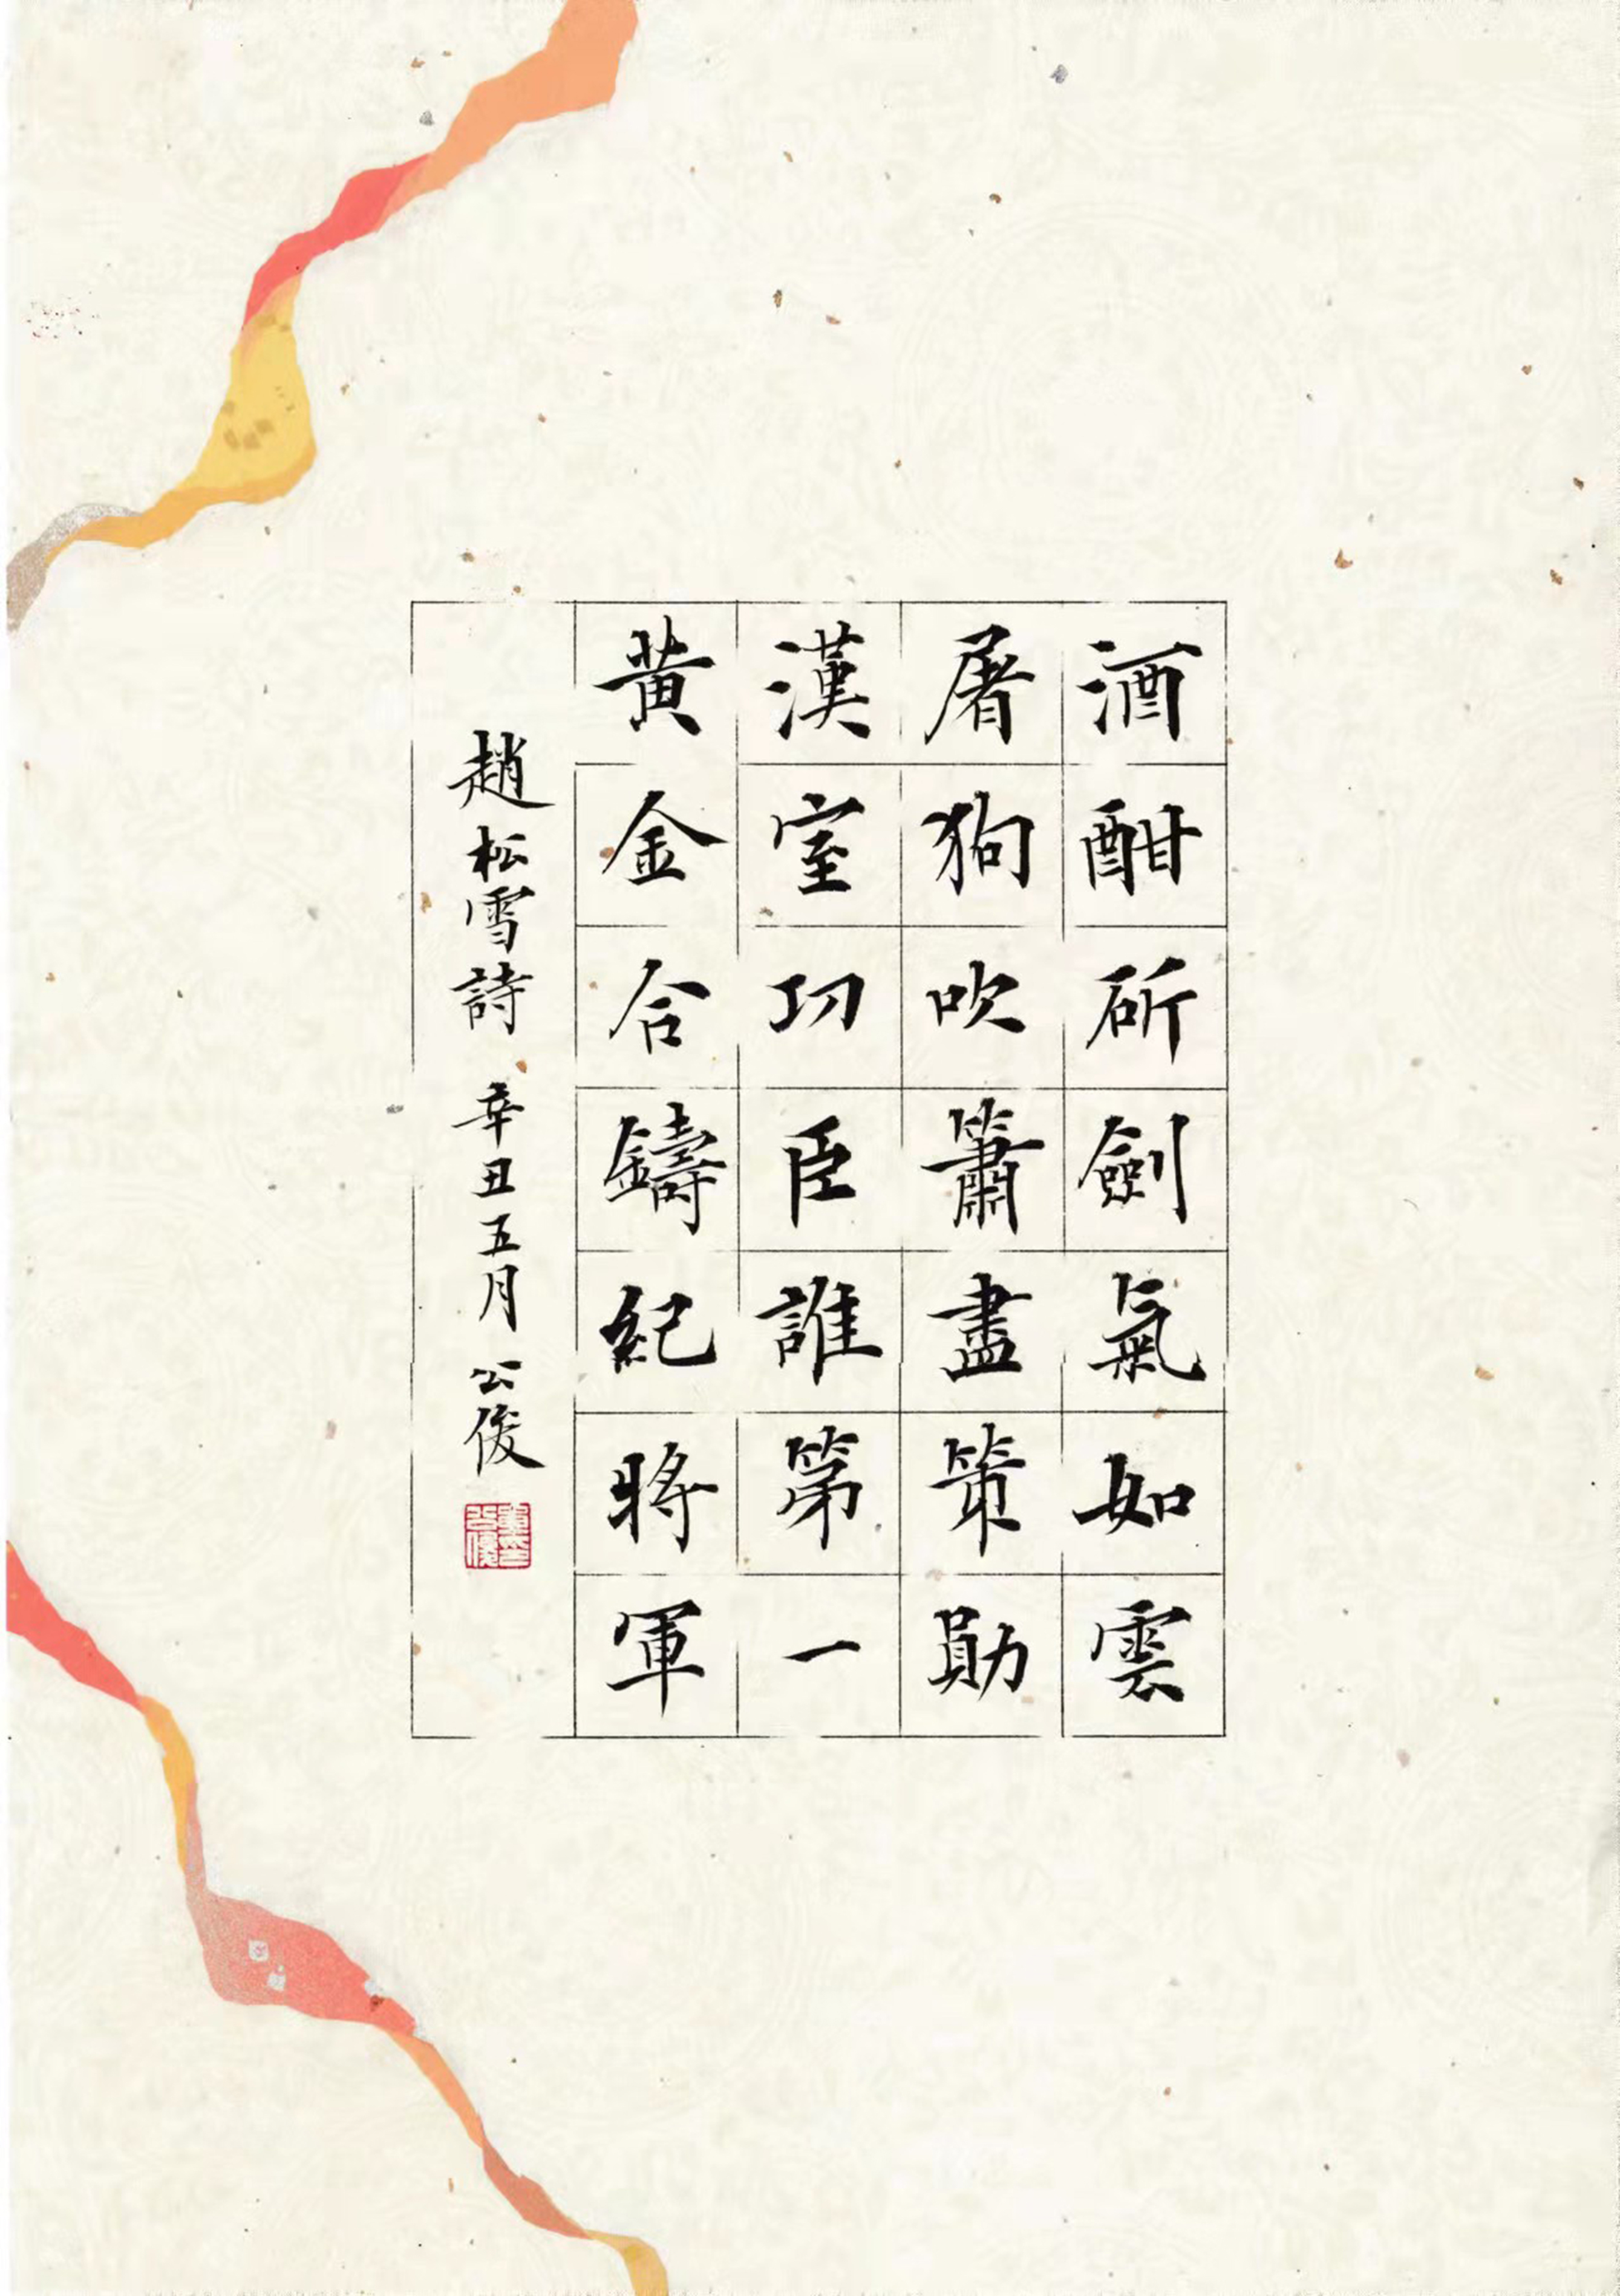 酒酣斫劍氣如雲
屠狗吹簫盡策勛
漢室功臣誰第一
黃金合鑄紀將軍
趙松雪詩 辛丑五月 公俊